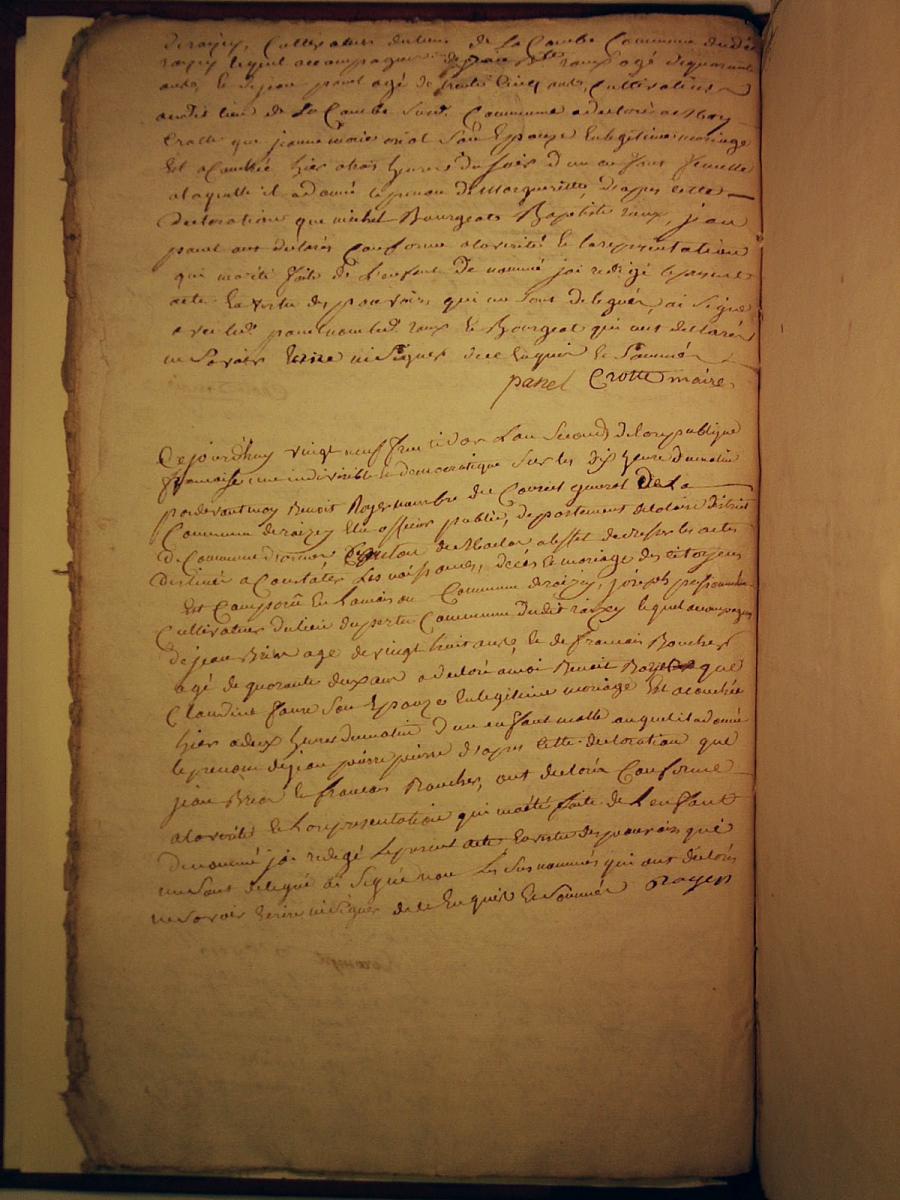 de roizey, Cultivateur du lieu de La Combe Commune dudit
roizey lequel accompagné de raux agé de quarante
ans, le de jean panel agé de trente Cinq ans, Cultivateur
audit lieu de La Combe Susd. Commune a declaré a moy
Crotte que jeanne marie oriol Son Epouze En legitime mariage
Est acouchée hier a trois heures du Soir d'un enfans femelle
a laquelle il a donné le prenom de Margueritte, d'apres cette
declaration que michel Bourgeat Baptiste raux, jean
panel ont declarés Conforme a la verité Et la representation
qui ma eté faite de L'enfant de nommé jai redigé le present
acte En vertu des pouvoirs qui me Sont delegués, ai Signé
avec led. panel non led. raux Et Bourgeat qui ont declarés
ne Savoir Ecrire ni Signer de ce Enquis Et Sommés
panel Crotte maire
Cejourd'huy vingt neuf fructidor L'an Second de la republique
francaise une indivisible et democratique Sur les dix heure du matin
pardevant moy Benoit Royer membre du Conseil general De La
Commune de roizey Elu officier public, departement de la loire district
de Commune d'armes Canton de Maclas a l'effet de dresser les actes
destinés a Constater Les naissances, décés Et mariage des citoyens
Est Comparû En la maison Commune de roizey, joseph
Cultivateur du lieu du Commune dudit roizey lequel accompagné
de jean Brior agé de vingt huit ans, Et de francois Boucher
agé de quarante deux ans a declaré a moi Benoit Royer que
Claudine faure Son Epouze En legitime mariage Est acouchée
hier a deux heures du matin d'un enfant malle auquel il a donné
le prenom de jean pierre d'apres cette declaration que
jean Brior Et francois Boucher, ont declarés Conforme
a la verité Et La representation qui ma eté faite de L'enfant
denommé jai redigé Le present acte En vertu des pouvoirs qui
me Sont delegué ai Signé non Les Susnommés qui ont declarés
ne Savoir Ecrire ni Signer de ce Enquis Et Sommés Royer